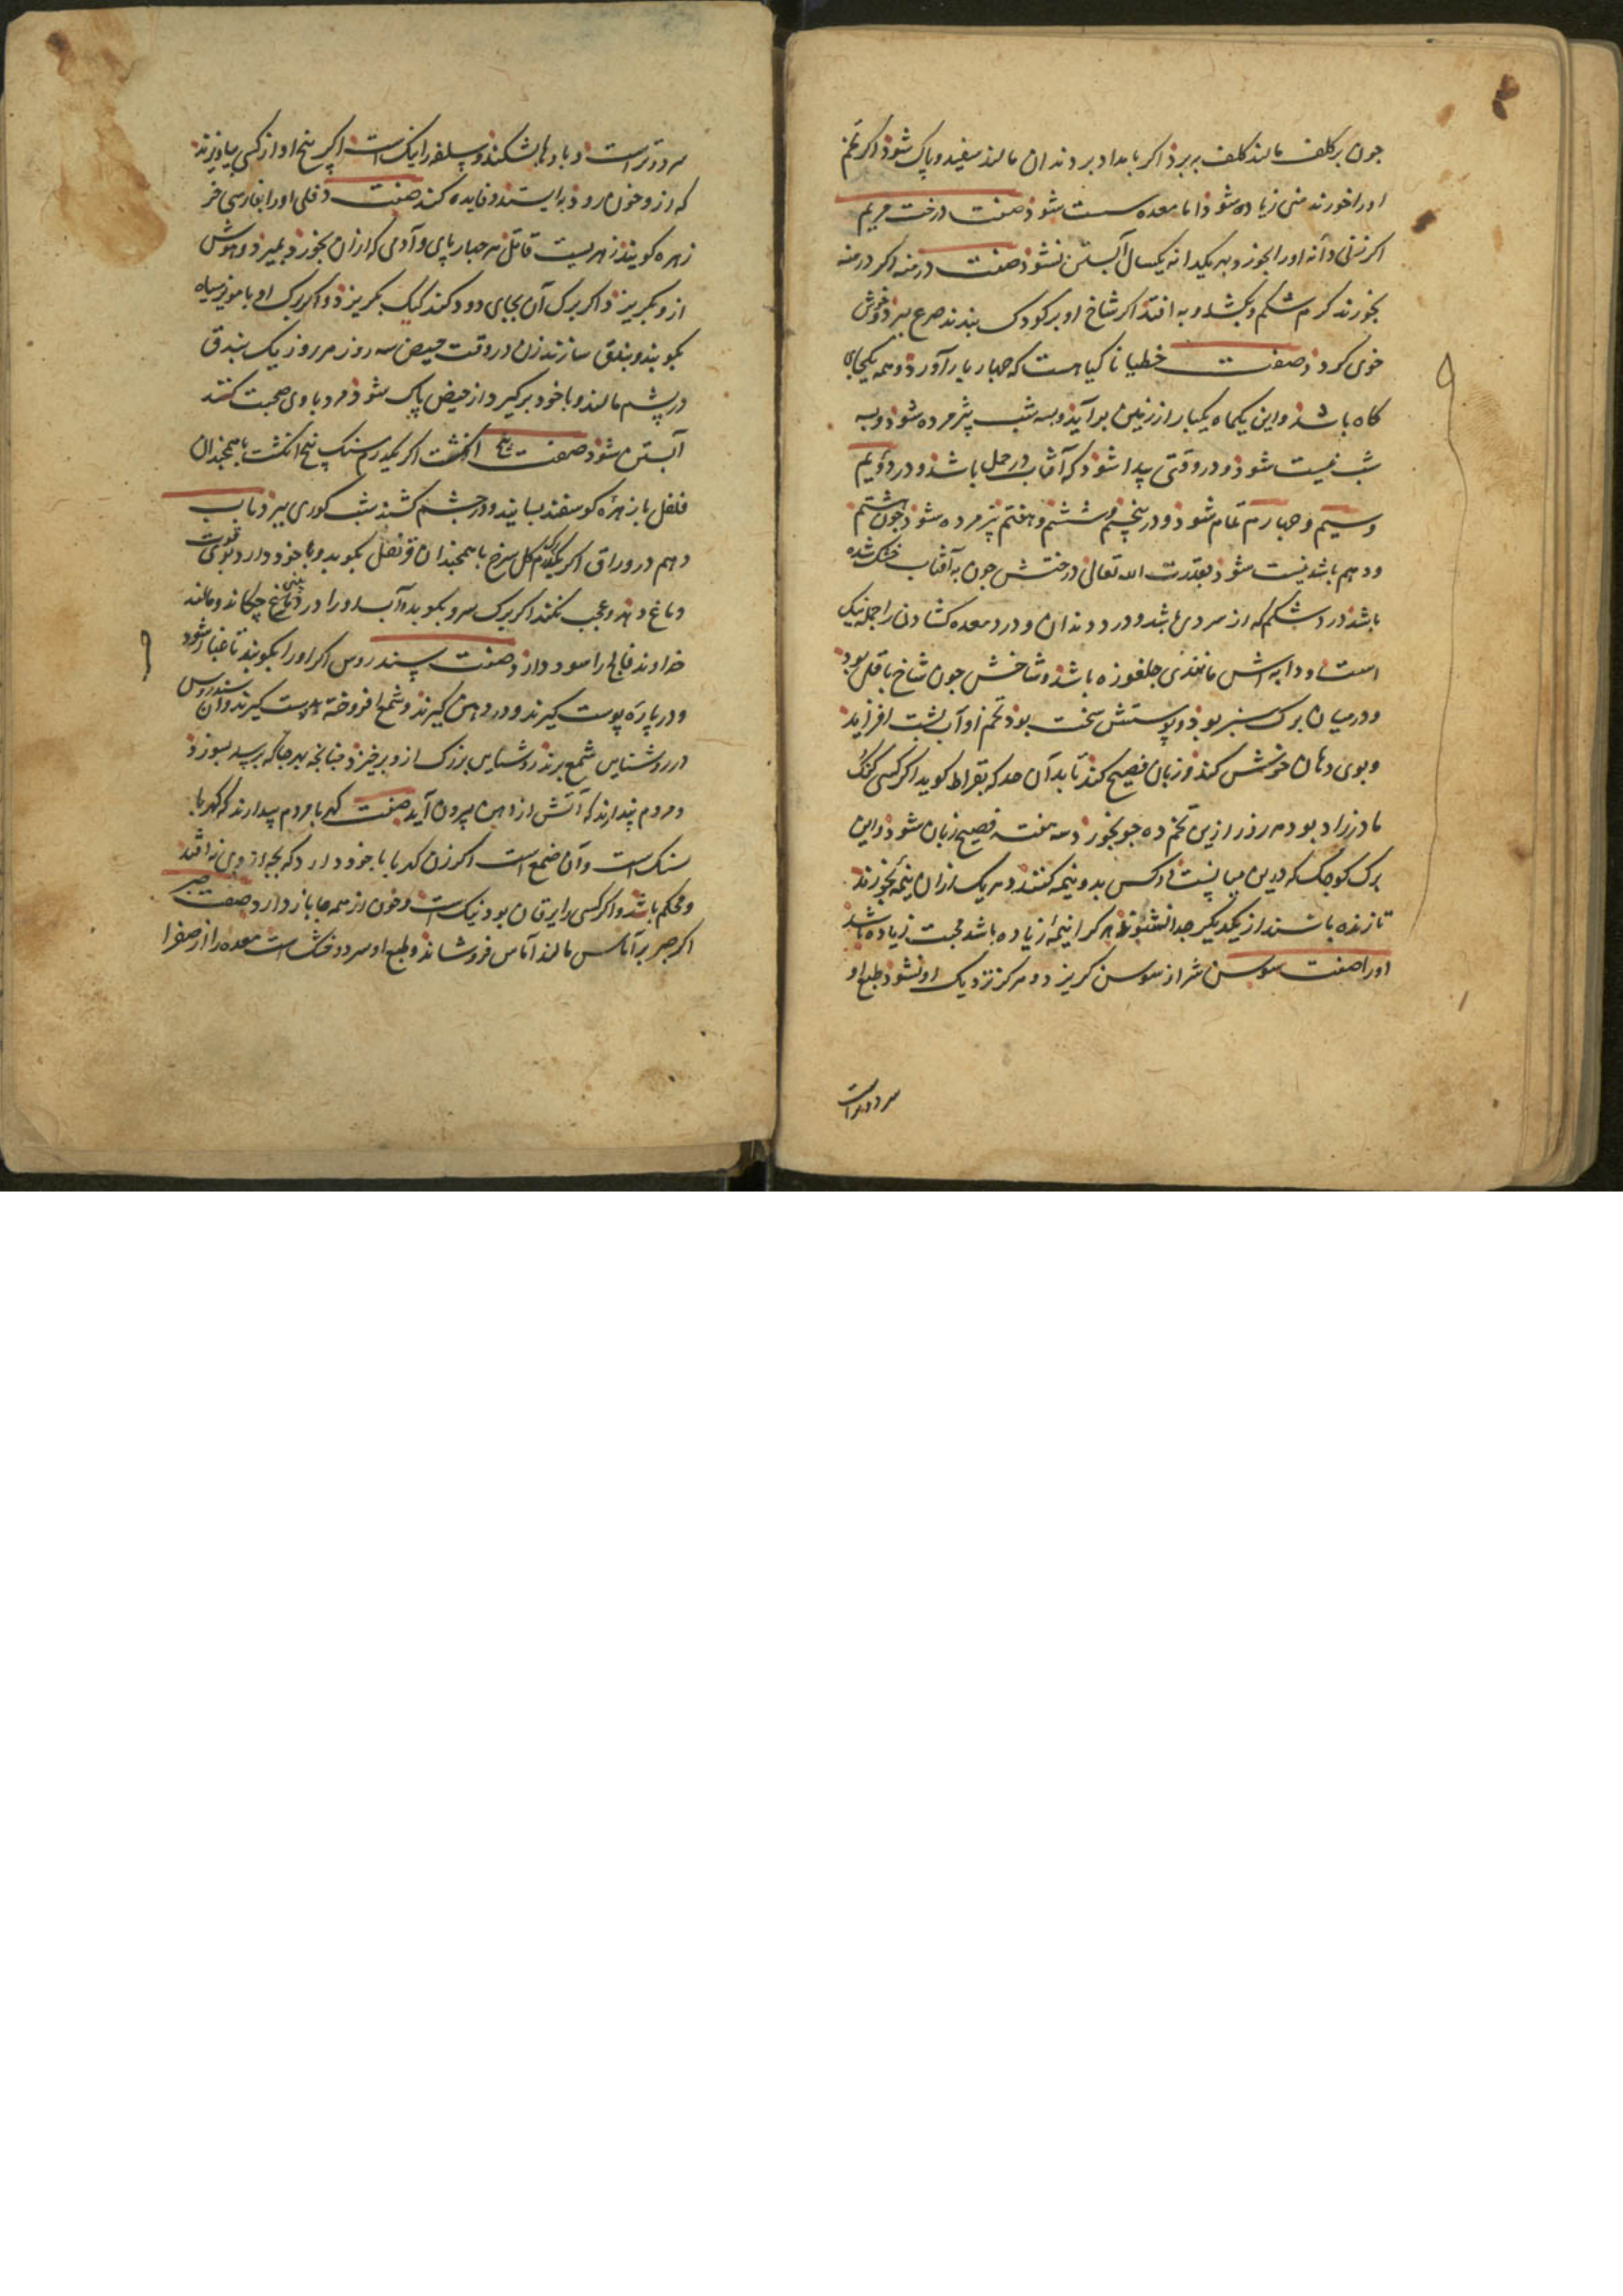 جون بر کلف مالند کلف ببرد اکر بامداد بر دندان مالند سفید و پاک شود اکر تخم
اورا خورند منی زیاده شود اما معده سست شود صفت درخت مریم
اکر زنی دانه اورا بخورد بهر یکدانه یکسال آبستن نشود صفت درمنه اکر درمنه
بخورند کرم شکم بکشد و به افتد اکر شاخ او بر کودک بندند صرع ببرد و خوش
خوی کردد صفت خطیانا کیاهست که جهار بار آورد و همه یکجای
کاه باشد و این یکماه یکبار از زمین برآید و بسه شب پژمرده شود و به
شب نیست شود و در وقتی پیدا شود که آفتاب در حمل باشد و در دویم
و سیم و جهارم تمام شود و در پنجم و ششم و هفتم پژمرده شود جون هشتم
و دهم باشد نیست شود بقدرت الله تعالی درختش جون به آفتاب خشک شده
باشد درد شکم که از سردی باشد و درد دندان و درد معده کشادن را جمله نیک
است و دانه اش مانندی جلغوزه باشد و شاخش جون شاخ باقلی بود
و در میان برک سبز بود و پوستش سخت بود تخم او آب پشت افزاید
و بوی دهان خوش کند و زبان فصیح کند تا بدآن حد که بقراط کوید اکر کسی کنک
مادرزاد بود هر روز ازین تخم ده جو بخورد سه هفته فصیح زبان شود و این
برک کوجک که درین میانست دو کس بدو نیمه کنند و هر یک ازان نیمه بخورند
تا زنده باشند از یکدیکر جدا نشوند هر کرا نیمه زیاده باشد محبت زیاده باشد
اورا صفت سوسن شر از سوسن کریزد و هرکز نزدیک او نشود طبع او
سرد و تر است
سرد و تر است و بادها بشکند و سلفه را نیک است اکر بیخ او از کسی بیاویزند
که ازو خون رود باز ایستد و فایده کند صفت دفلی اورا بفارسی خر
زهره کویند زهریست قاتل هر جهار پای و آدمی که ازان بخورد بمیرد و موش
ازو بکریزد اکر برک آن بجای دود کنند کیک بکریزد و اکر برک او با مویز سیاه
بکوبند و بندق سازند زن در وقت حیض سه روز هر روز یک بندق
در پشم مالند و با خود برکیرد از حیض پاک شود مرد با وی صحبت کند
آبستن شود صفت پنج انکشت اکر یکدرم سنک پنج انکشت با همجندان
فلفل با زهره کوسفند بسایند و در جشم کشند شب کوری ببرد باب
دهم در اوراق اکر یکدرم کل سرخ با همجندان قرنفل بکوبد و با خود دارد بوی قوت
دماغ دهد و عجب کند اکر برک سرو بکوبد و آب اورا در بینی دماغ جکاند و مالند
خداوند فالج را سود دارد صفت سندروس اکر اورا بکوبند تا غبار شود
و در پاره پوست کیرند و در دهن کیرند و شمع افروخته بدست کیرند و آن سندروس
در روشنایی شمع برند روشنایی بزرک ازو برخیزد جنانجه بهر جا که برسد بسوزد
و مردم پندارند که آتش از دهن بیرون آید صفت کهربا مردم پندارند که کهربا
سنک است و آن صمغ است اکر زن کهربا با خود دارد که بجه از وی نه افتد
و محکم باشد و اکر کسی را یرقان بود نیک است و خون از همه جا باز دارد صفت صبر
اکر صبر بر آماس مالند آماس فرو نشاند و طبع او سرد و خشک است معده را از صفرا